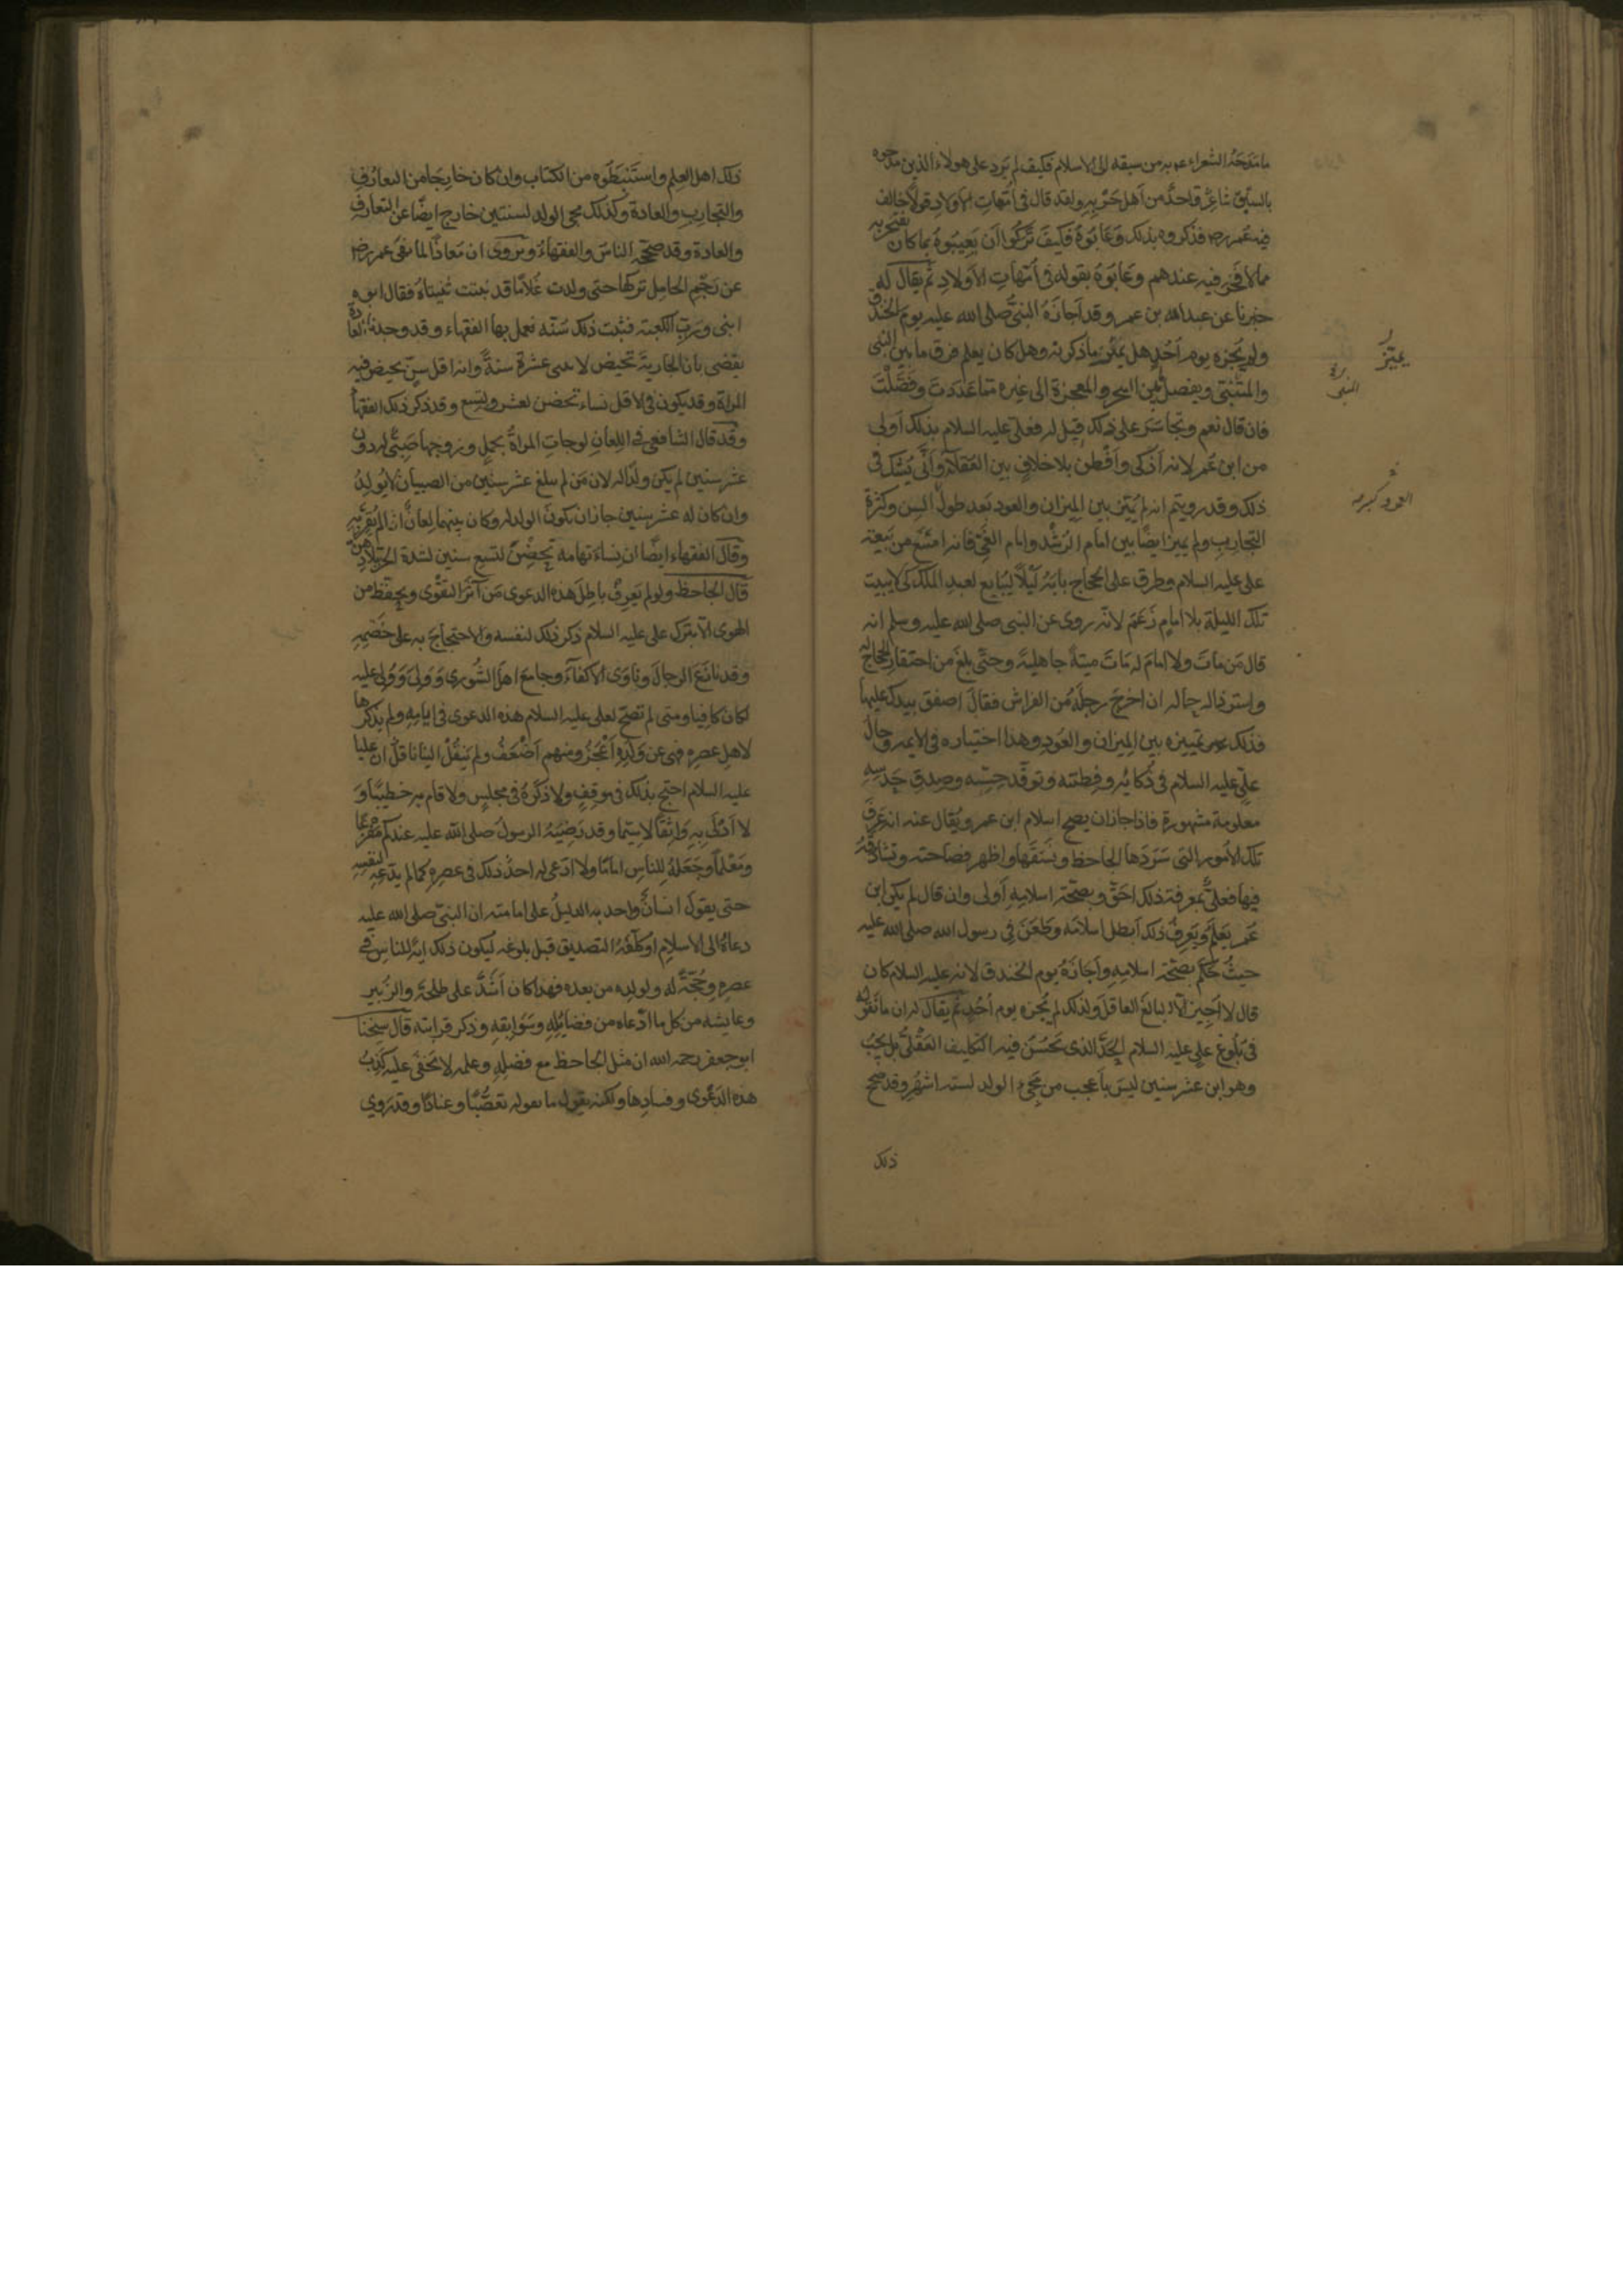 ما مدحه الشعراء به من سبقه الى الاسلام فكيف لم يرد على هولاء الذين مدحوه
بالسبق شاعر واحد من اهل حربه ولقد قال فى امهات الاولاد قولا خالف
فيه عمر رض فذكروه بذلك وعابوه فكيف تركوا ان يعيبوه بما كان يفتخر به
مما لا فخر فيه عندهم وعابوه بقوله فى امهات الاولاد ثم يقال له
خبرنا عن عبدالله بن عمر وقد اجازه النبى صلى الله عليه يوم الخندق
ولم يجزه يوم احد هل يميز ما ذكرته وهل كان يعلم فرق ما بين النبى
والمتنبى ويفصل بين السحر والمعجزة الى غيره مما عددت وفصلت
فان قال نعم وتجاسر على ذلك قيل له فعلى عليه السلام بذلك اولى
من ابن عمر لانه اذكى وافطن بلا خلاف بين العقلاء وانى يشك فى
ذلك وقد رويتم انه لم يميز بين الميزان والعود بعد طول السن وكثرة
التجارب ولم يميز ايضا بين امام الرشد وامام الغى فانه امتنع من بيعة
على عليه السلام وطرق على الحجاج بابه ليلا ليبايع لعبد الملك كى لا يبيت
تلك الليلة بلا امام زعم لانه روى عن النبى صلى الله عليه وسلم انه
قال من مات ولا امام له مات ميتة جاهلية وحتى بلغ من احتقار الحجاج له
واسترذاله حاله ان اخرج رجله من الفراش فقال اصفق بيدك عليها
فذلك تمييزه بين الميزان والعود وهذا اختياره فى الايمة وحال
على عليه السلام فى ذكائه وفطنته وتوقد حسه وصدق حدسه
معلومة مشهورة فاذا جاز ان يصح اسلام ابن عمر ويقال عنه انه عرف
تلك الامور التى سردها الجاحظ ونسقها واظهر فصاحته وتشادقه
فيها فعلى بمعرفة ذلك احق وبصحة اسلامه اولى وان قال لم يكن ابن
عمر يعلم ويعرف ذلك ابطل اسلامه وطعن فى رسول الله صلى الله عليه
حيث حكم بصحة اسلامه واجازه يوم الخندق لانه عليه السلام كان
قال لا اجيز الا البالغ العاقل ولذلك لم يجزه يوم احد ثم يقال له ان ما نقوله
فى بلوغ على عليه السلام الحد الذى يحسن فيه التكليف العقلى بل يجب
وهو ابن عشر سنين ليس باعجب من مجىء الولد لستة اشهر وقد صحح
ذلك
يميز
العود كبيرة
ذلك اهل العلم واستنبطوه من الكتاب وان كان خارجا من التعارف
والتجارب والعادة وكذلك مجى الولد لسنتين خارج ايضا عن التعارف
والعادة وقد صححه الناس والفقهاء ويروى ان معاذا لما نهى عمر رض
عن رجم الحامل تركها حتى ولدت غلاما قد نبتت ثنيتاه فقال ابوه
ابنى ورب الكعبة فثبت ذلك سنة فعمل بها الفقهاء وقد وجدنا العادة
تقضى بان الجارية تحيض لاثنتى عشرة سنة وانه اقل سن تحيض فيه
المراة وقد يكون فى الاقل نساء تحضن لعشر ولتسع وقد ذكر ذلك الفقهاء
وقد قال الشافعى فى اللعان لو جات المراة بحمل وزوجها صبى له دون
عشر سنين لم يكن ولدا له لان من لم يبلغ عشر سنين من الصبيان لا يولد له
وان كان له عشر سنين جاز ان يكون الولد له وكان بينهما لعان اذا لم يقر به
وقال الفقهاء ايضا ان نساء تهامه تحضن لتسع سنين لشدة الحر ببلادهن
قال الجاحظ ولو لم يعرف باطل هذه الدعوى من آثر التقوى وتحفظ من
الهوى الا بترك على عليه السلام ذكر ذلك لنفسه والاحتجاج به على خصمه
وقد نازع الرجال وناوى الاكفاء وجامع اهل الشورى وولى وولى عليه
لكان كافيا ومتى لم تصح لعلى عليه السلام هذه الدعوى فى ايامه ولم يذكرها
لاهل عصره فهى عن ولده اعجز ومنهم اضعف ولم ينقل الينا ناقل ان عليا
عليه السلام احتج بذلك فى موقف ولا ذكره فى مجلس ولا قام به خطيبا و
لا ادلى به واثقا لا سيما وقد رضيه الرسول صلى الله عليه عندكم مفزعا
ومعلما وجعله للناس اماما ولا ادعى له احد ذلك فى عصره كما لم يدعه لنفسه
حتى يقول انسان واحد به الدليل على امامته ان النبى صلى الله عليه
دعاه الى الاسلام او كلفه التصديق قبل بلوغه ليكون ذلك اية للناس فى
عصره وحجة له ولولده من بعده فهذا كان اشد على طلحة والزبير
وعايشه من كل ما ادعاه من فضايله وسوابقه وذكر قرابته قال شيخنا
ابوجعفر رحمه الله ان مثل الجاحظ مع فضله وعلمه لا يخفى عليه كذب
هذه الدعوى وفسادها ولكنه يقول ما يقوله تعصبا وعنادا وقد روى